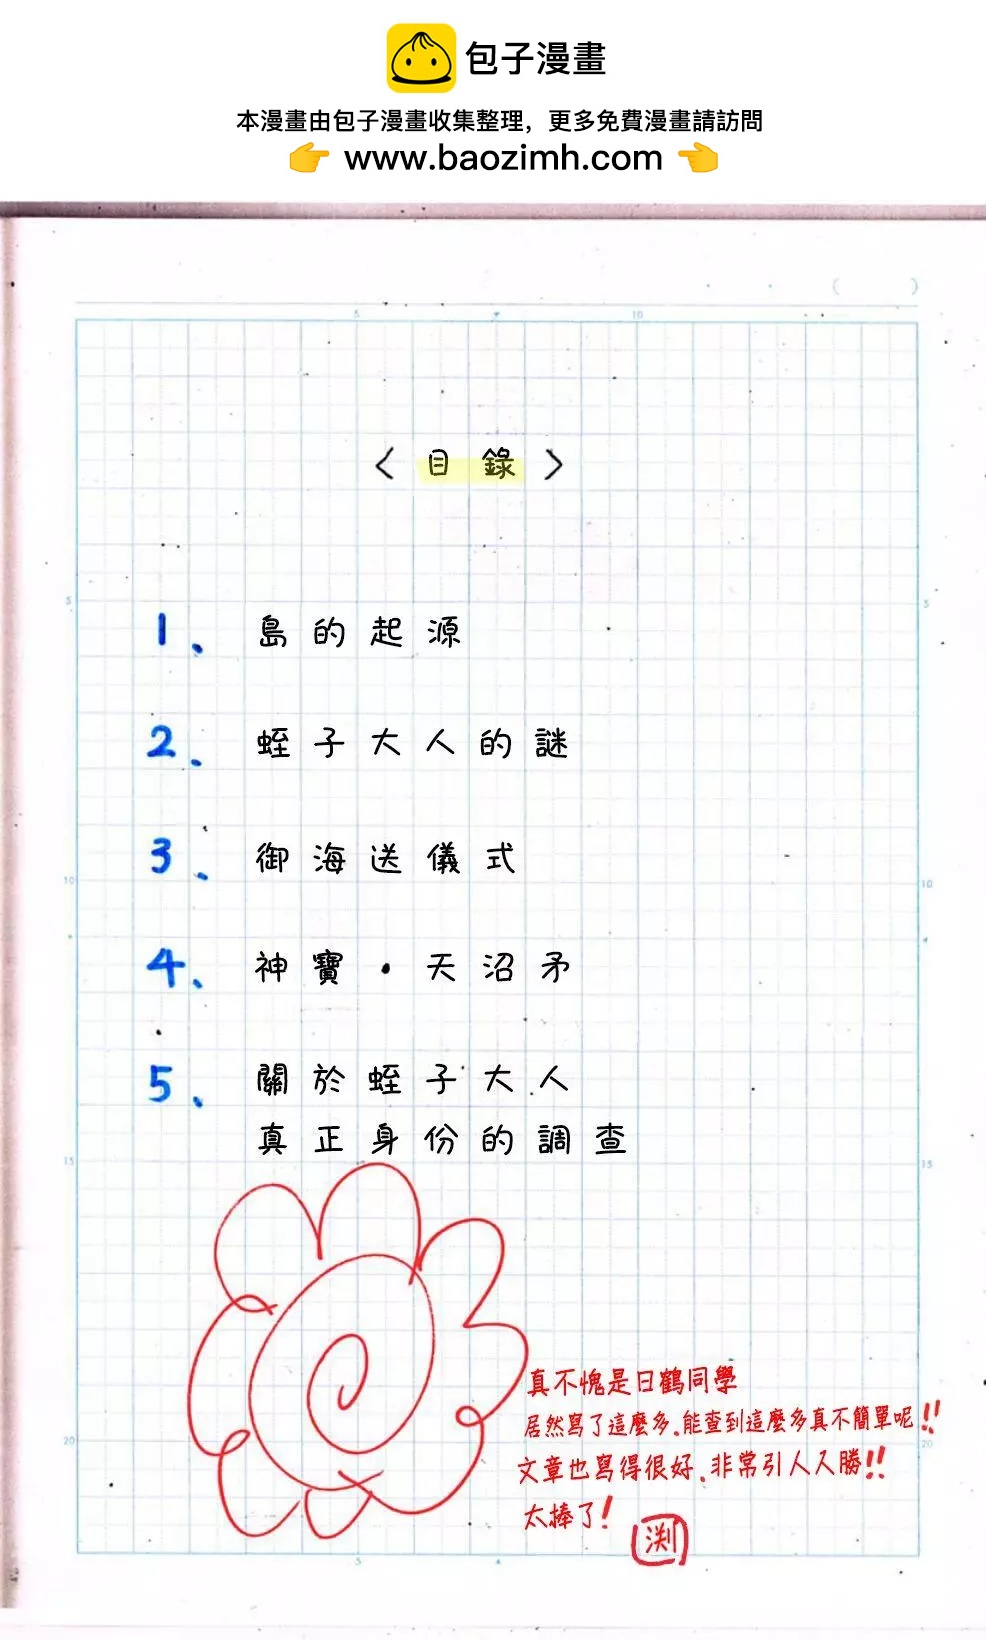 包子漫畫
本漫畫由包子漫畫收集整理，更多免費漫畫請訪問
👉 www.baozimh.com 👈
( )
5 10
〈目錄〉
5 5
1、島的起源
2、蛭子大人的謎
3、御海送儀式
10 10
4、神寶·天沼矛
5、關於蛭子大人
真正身份的調查
15 15
真不愧是日鶴同學
居然寫了這麼多.能查到這麼多真不簡單呢!!
20 20
文章也寫得很好.非常引人入勝!!
太棒了!
渕
5